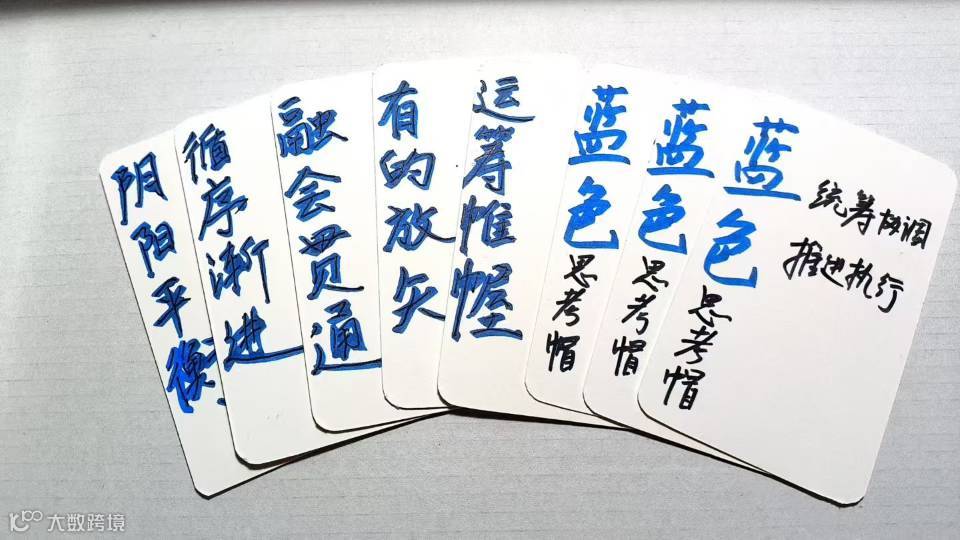 阴阳平衡
循序渐进
融会贯通
有的放矢
运筹帷幄
蓝色思考帽
蓝色思考帽
蓝色思考帽
统筹协调
推进执行
大数跨境